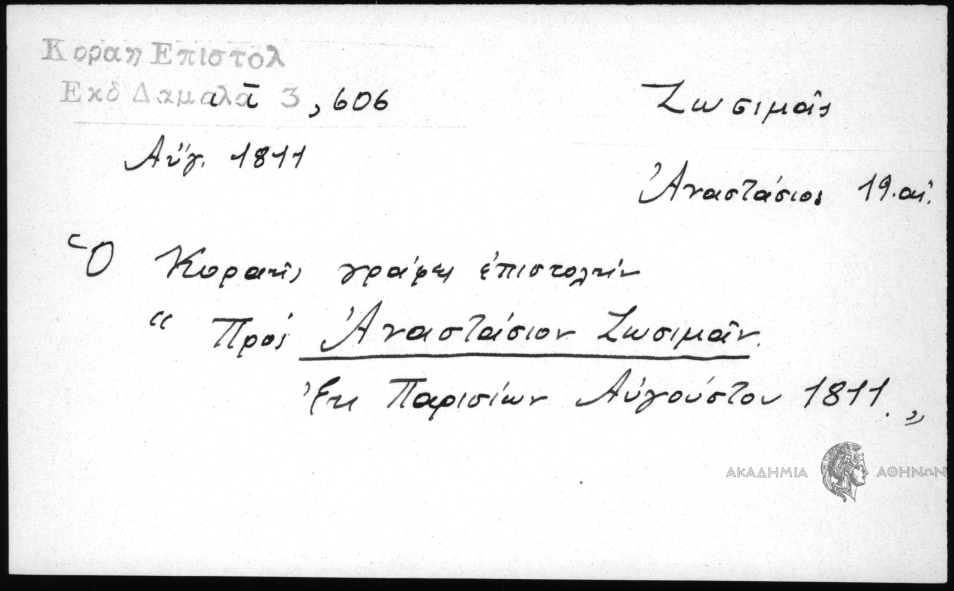 Κοραη Επιστολ
Εκδ Δαμαλᾶ 3, 606
Αὐγ. 1811
Ζωσιμᾶς
Ἀναστάσιος 19. αἰ.
Ὁ Κοραῆς γράφει ἐπιστολὴν
“ Πρός Ἀναστάσιον Ζωσιμᾶν.
Ἐκ Παρισίων Αὐγούστου 1811. „
ΑΚΑΔΗΜΙΑ ΑΘΗΝΩΝ